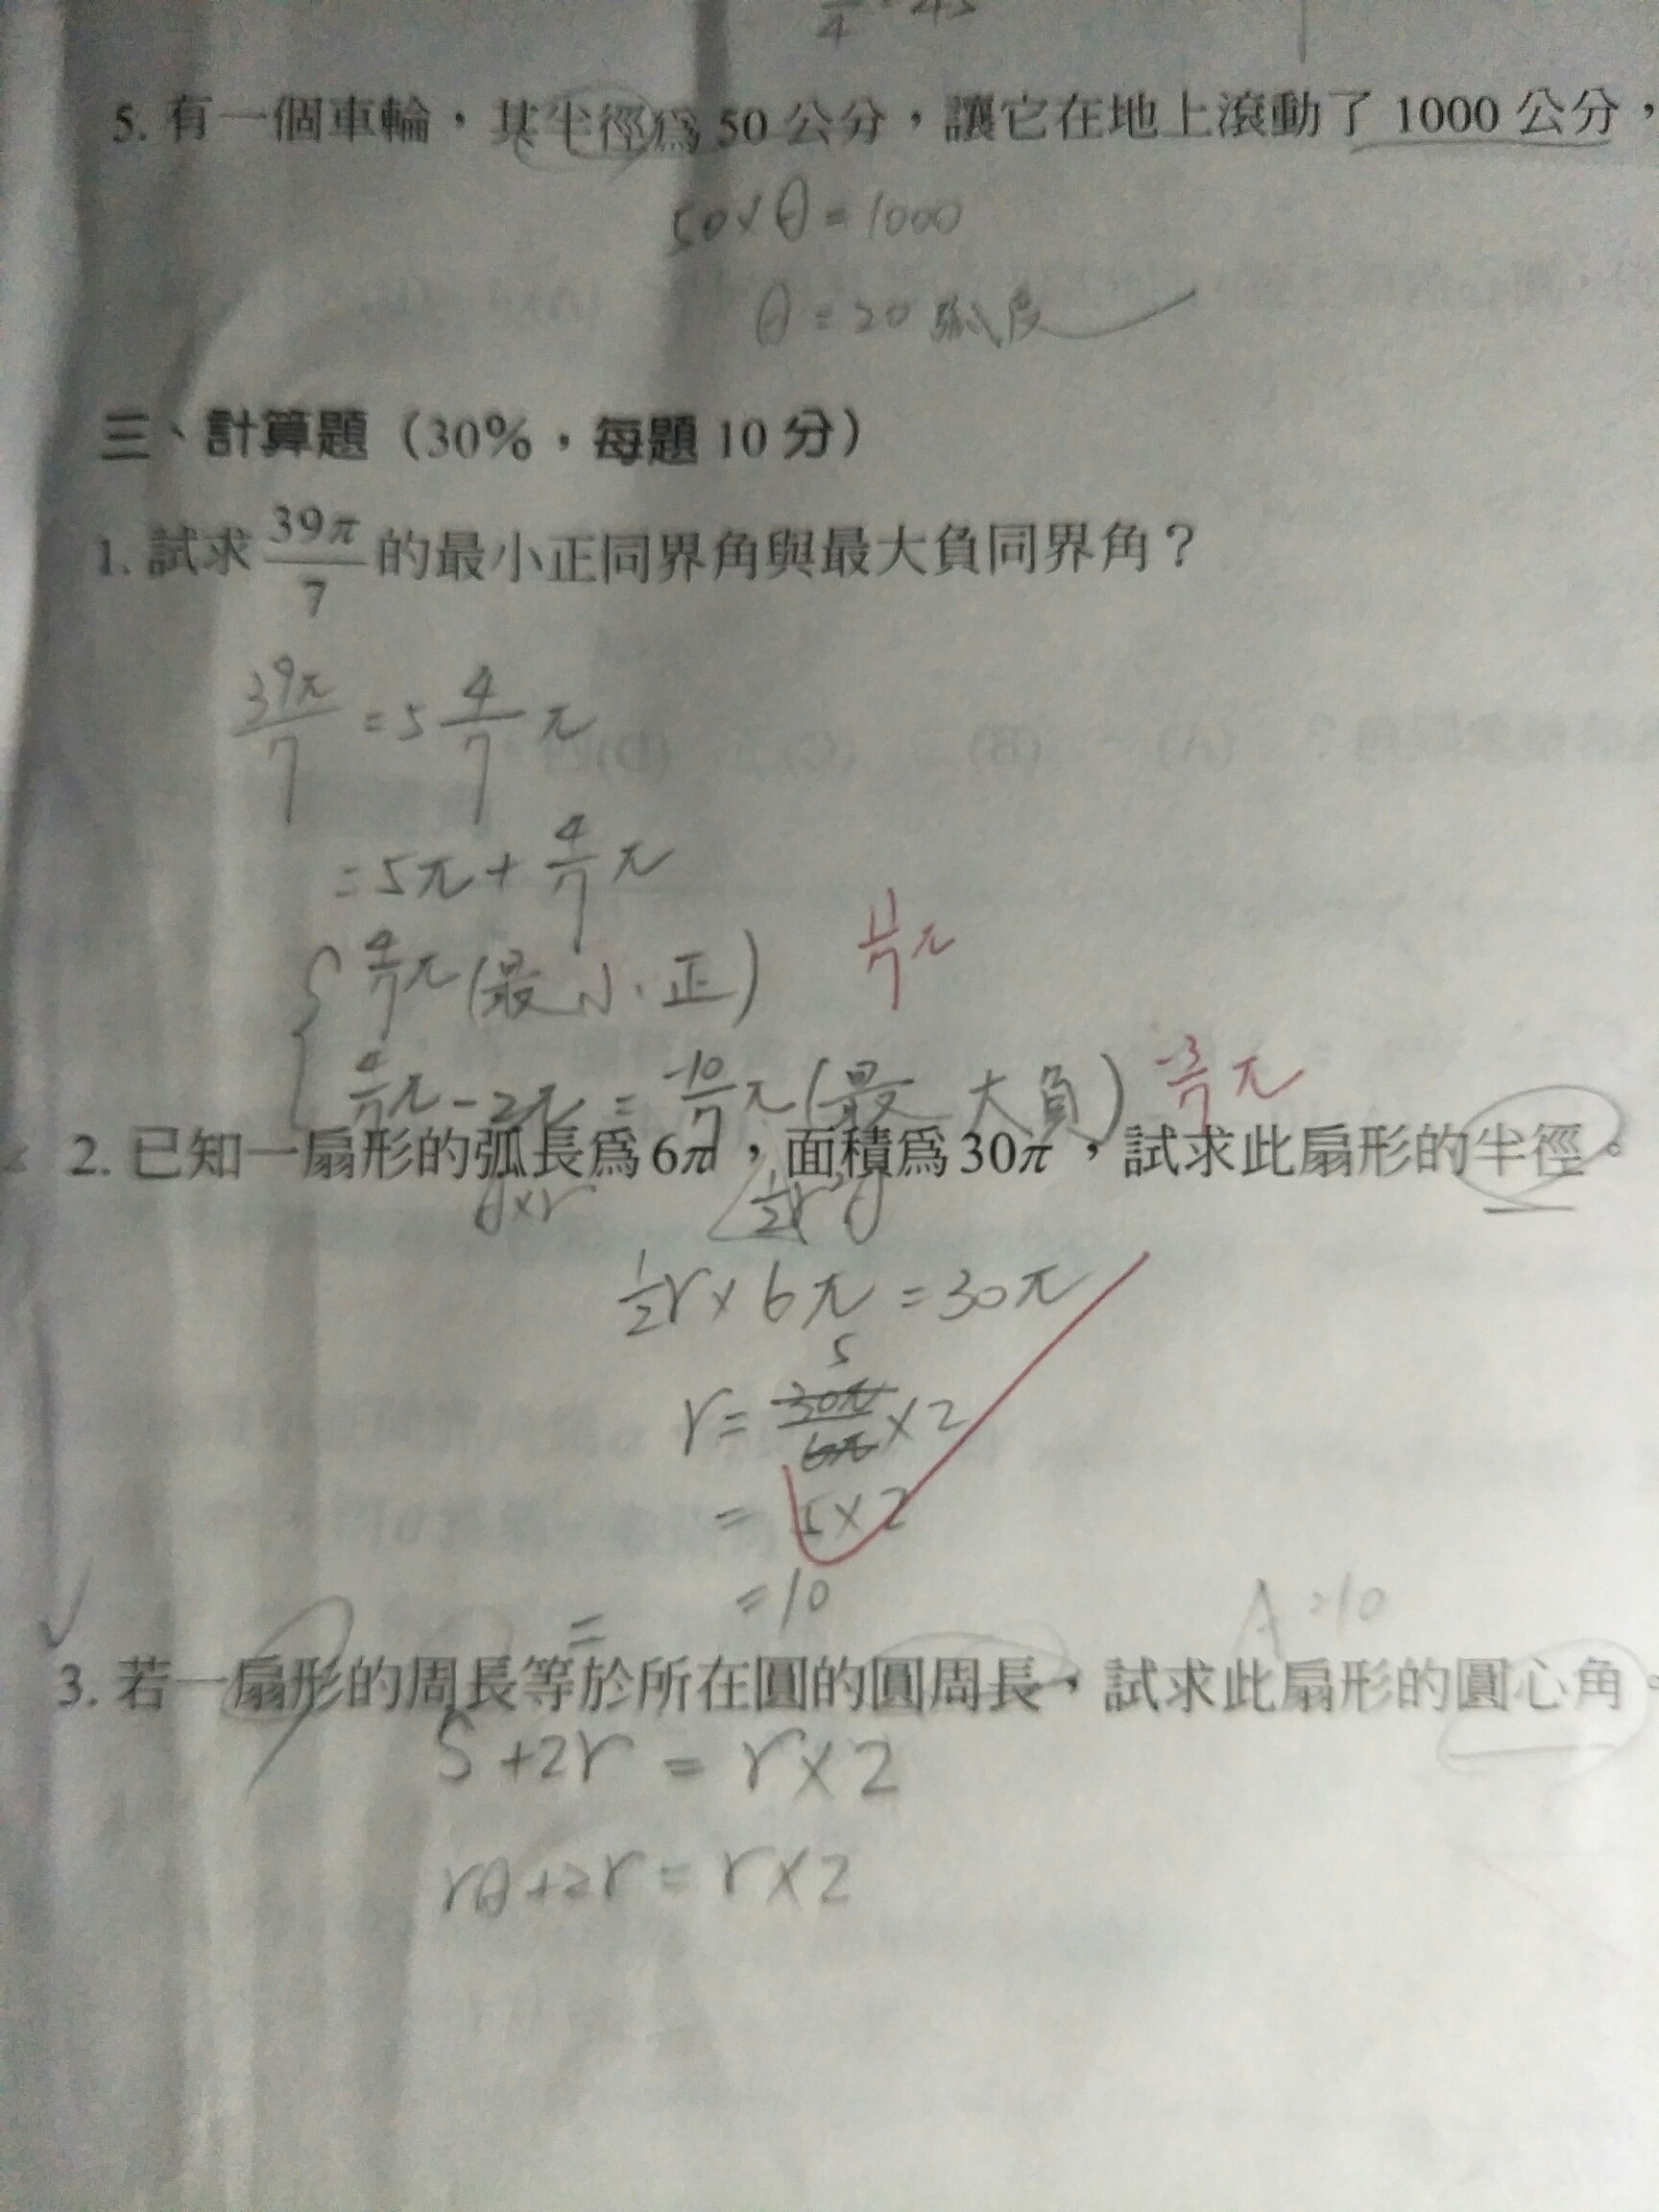 5. 有一個車輪，其半徑為 50 公分，讓它在地上滾動了 1000 公分，
50×θ=1000
θ=20 弧度
三、計算題（30%，每題 10 分）
1. 試求 39π/7 的最小正同界角與最大負同界角？
39π/7 = 5 4/7 π
= 5π + 4/7 π
4/7 π (最小正) 11/7 π
4/7 π - 2π = -10/7 π (最大負) -3/7 π
2. 已知一扇形的弧長為 6π，面積為 30π，試求此扇形的半徑。
θ×r 1/2 r²θ
1/2 r × 6π = 30π
5
r = 30π/6π × 2
= 5×2
= 10
A=10
=
3. 若一扇形的周長等於所在圓的圓周長，試求此扇形的圓心角。
S+2r = r×2
rθ+2r = r×2